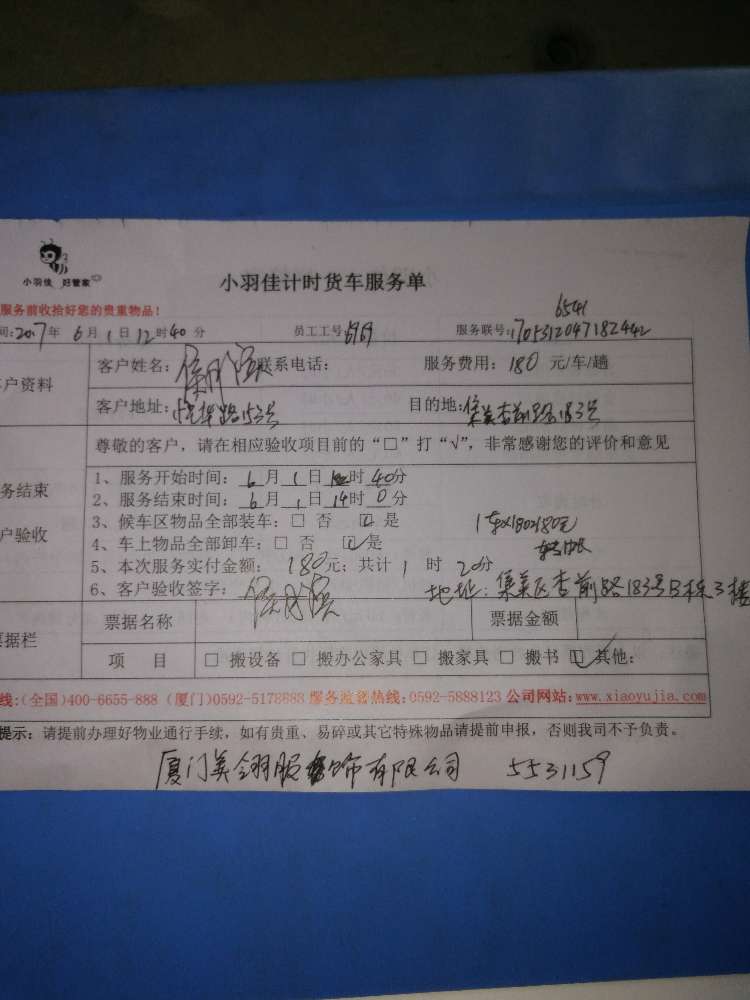 小羽佳 好管家
小羽佳计时货车服务单
服务前收拾好您的贵重物品!
6541
间:2017年 6月1日12时40分 员工工号 服务联号:1705312047182442
客户资料 客户姓名: 联系电话: 服务费用: 180 元/车/趟
客户地址: 路153号 目的地:集美杏前路183号
尊敬的客户，请在相应验收项目前的“□”打“√”，非常感谢您的评价和意见
务结束
户验收
1、服务开始时间: 6月1日12时40分
2、服务结束时间: 6月1日14时0分
3、候车区物品全部装车: □ 否 ☑ 是 1车x180=180元
4、车上物品全部卸车: □ 否 ☑ 是
5、本次服务实付金额: 180元; 共计1 时 20分
6、客户验收签字: 地址: 集美区杏前路183号B栋3楼
票据栏 票据名称 票据金额
项 目 □ 搬设备 □ 搬办公家具 □ 搬家具 □ 搬书 ☑ 其他:
线:(全国)400-6655-888 (厦门)0592-5178683 服务监督热线:0592-5888123 公司网站:www.xiaoyujia.com
提示: 请提前办理好物业通行手续，如有贵重、易碎或其它特殊物品请提前申报，否则我司不予负责。
厦门美翎服饰有限公司 5531159